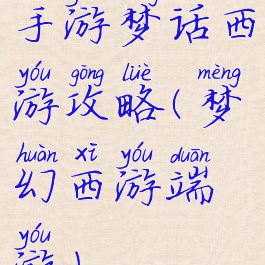 手游梦话西
yóu gōng lüè mèng
游攻略(梦
huàn xī yóu duān
幻西游端
yóu
游)